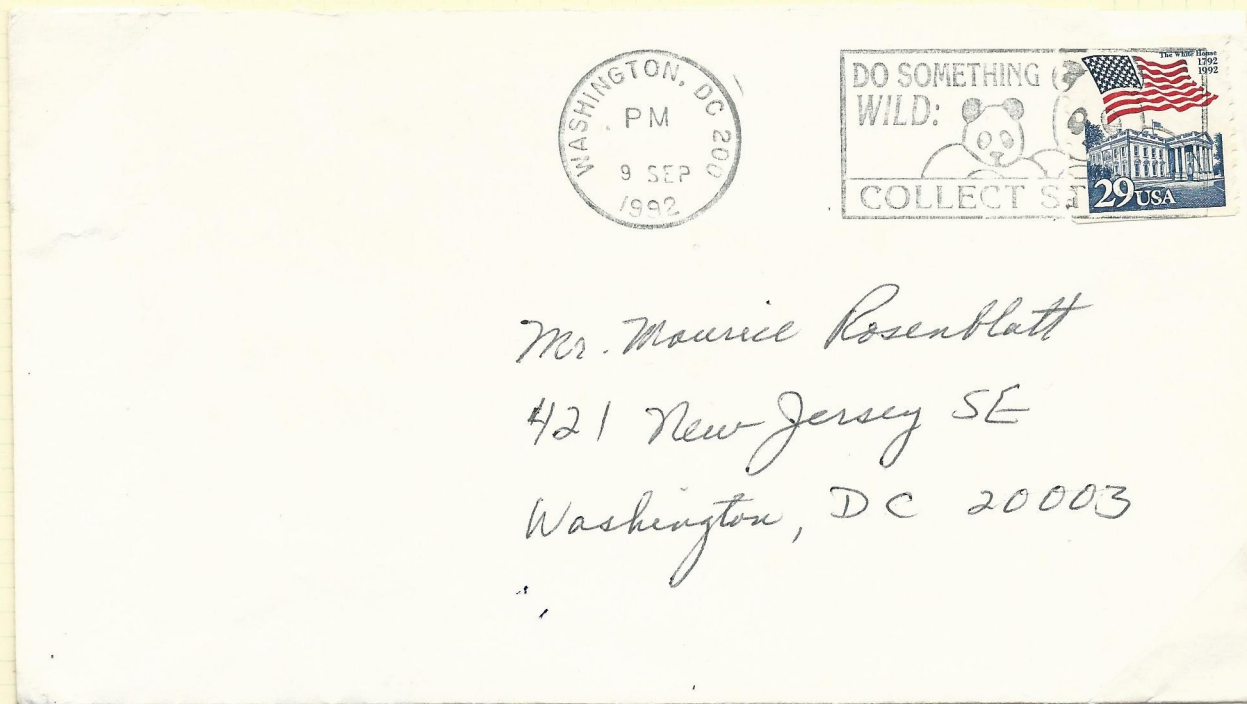 WASHINGTON, DC 200
PM
9 SEP
1992
DO SOMETHING
WILD:
COLLECT
The White House
1792
1992
29 USA
Mr. Maurice Rosenblatt
421 New Jersey SE
Washington, DC 20003